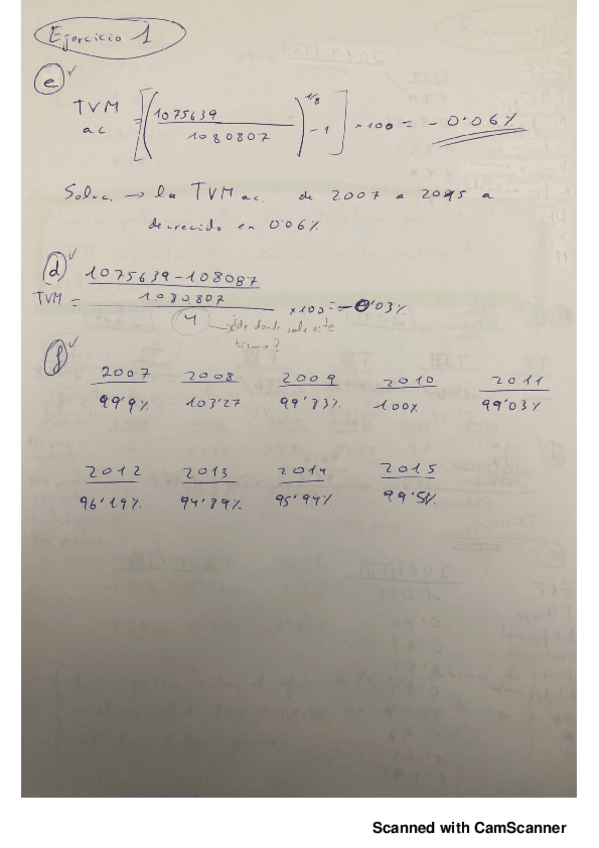 Ejercicio 1
e ✓
TVM ac = [(1075639 / 1080807)^1/8 - 1] × 100 = - 0'06%
Soluc. → la TVM ac. de 2007 a 2015 a
decrecido en 0'06%
d ✓
TVM = 1075639-108087 / 1080807 / 4 × 100 = - 0'03%
¿de donde sale este
termo?
f ✓
2007 2008 2009 2010 2011
99'9% 103'27 99'83% 100% 99'03%
2012 2013 2014 2015
96'19% 94'89% 95'94% 99'51%
Scanned with CamScanner